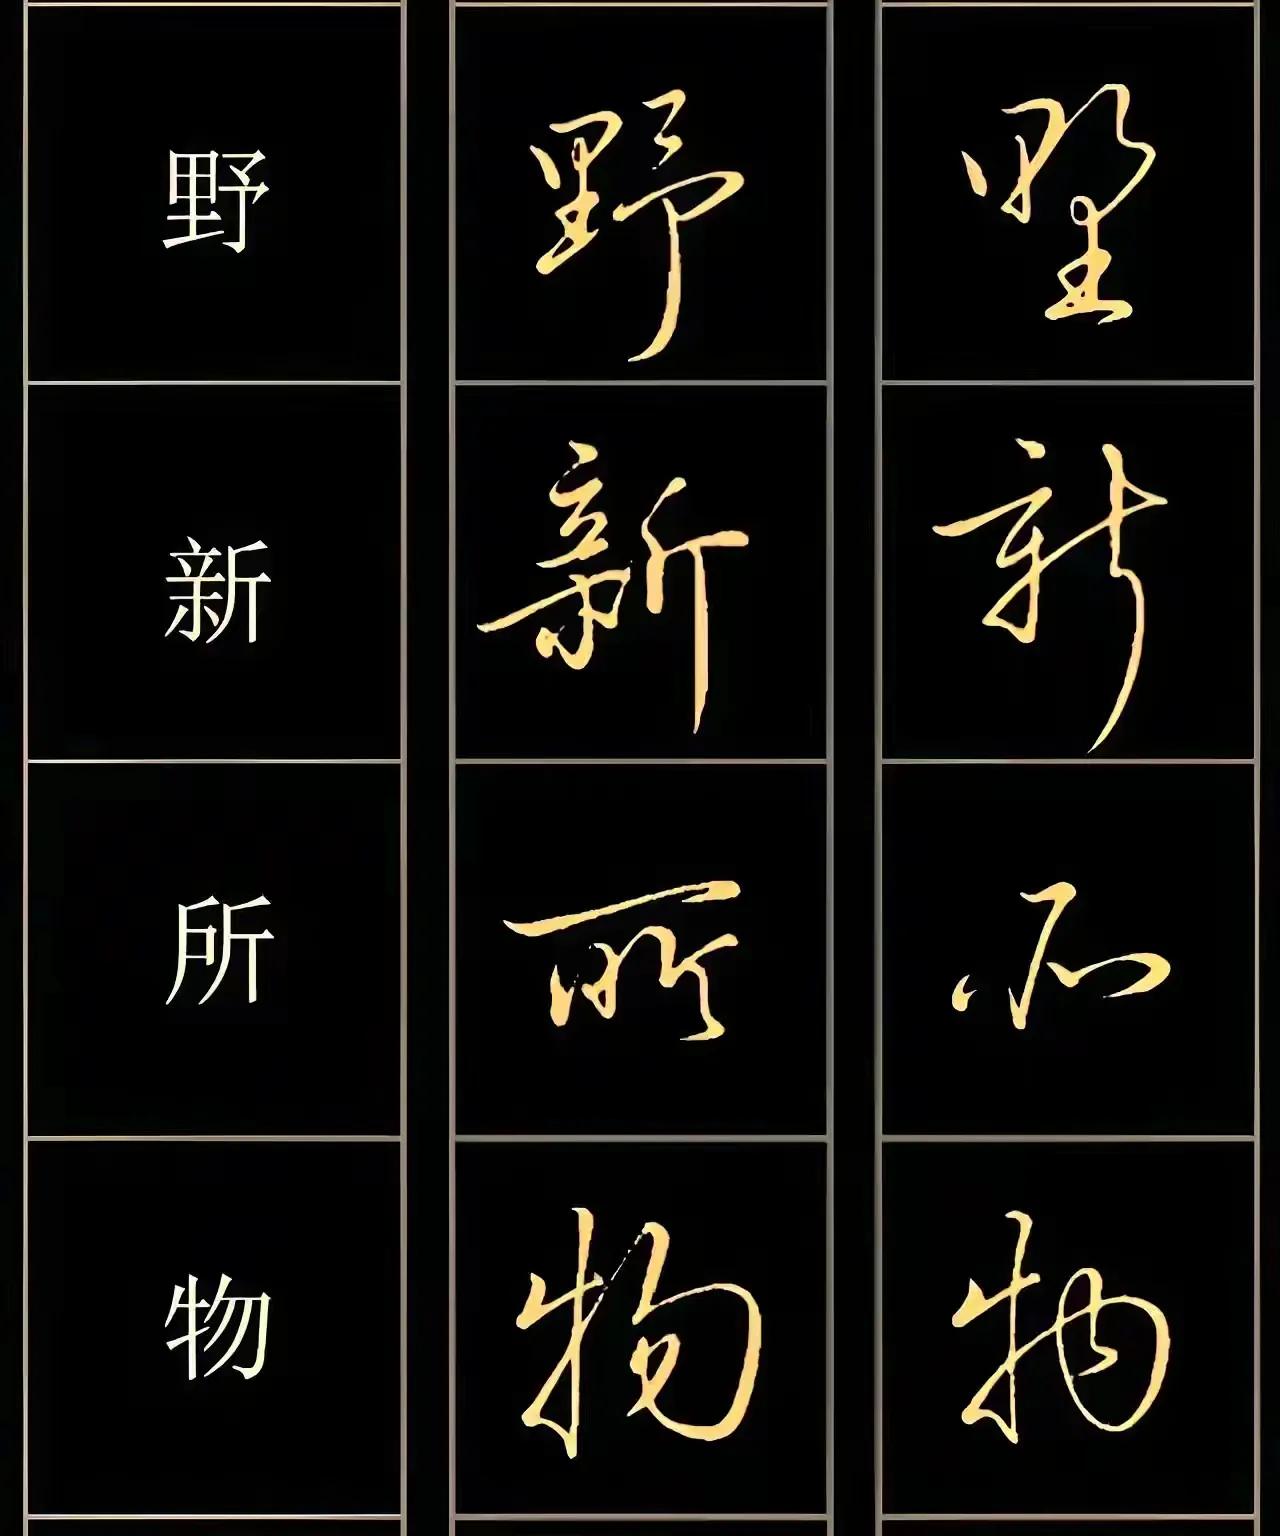 野 野 野
新 新 新
所 所 所
物 物 物